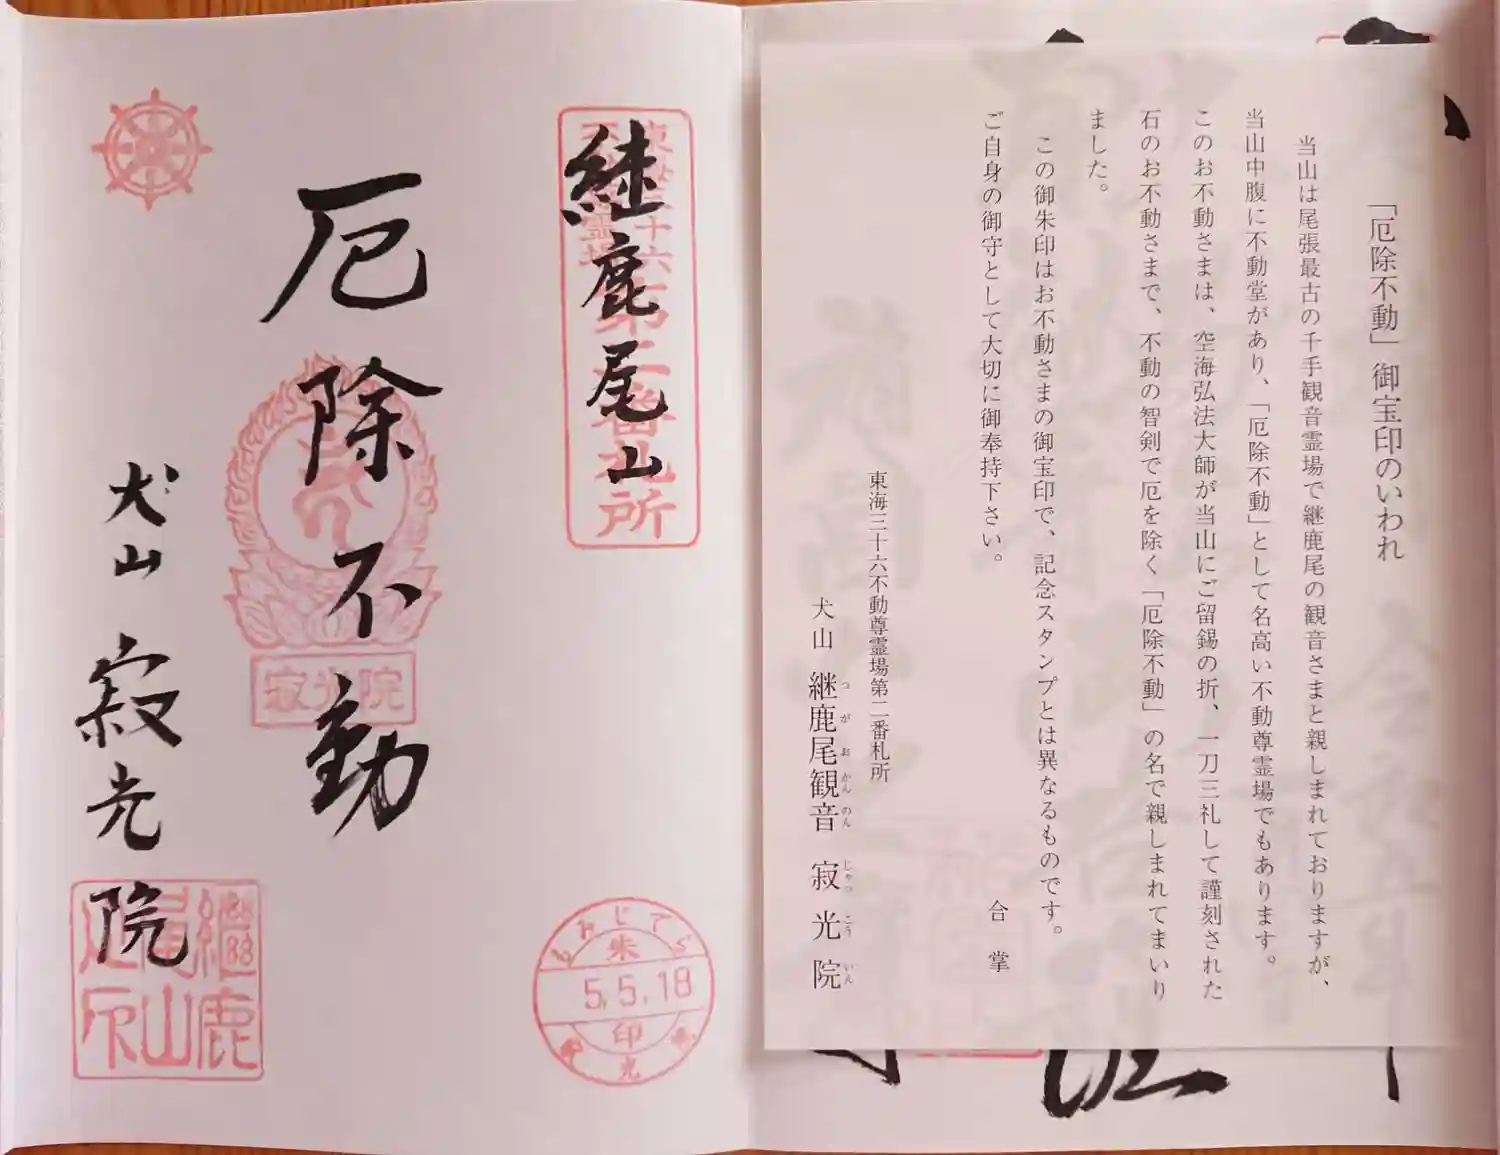 「厄除不動」御宝印のいわれ
当山は尾張最古の千手観音霊場で継鹿尾の観音さまと親しまれておりますが、
当山中腹に不動堂があり、「厄除不動」として名高い不動尊霊場でもあります。
このお不動さまは、空海弘法大師が当山にご留錫の折、一刀三礼して謹刻された
石のお不動さまで、不動の智剣で厄を除く「厄除不動」の名で親しまれてまいり
ました。
この御朱印はお不動さまの御宝印で、記念スタンプとは異なるものです。
ご自身の御守として大切に御奉持下さい。
合掌
東海三十六不動尊霊場第二番札所
犬山 継鹿尾観音 寂光院
つがおかんのん じゃっこういん
継鹿尾山
第二番札所
厄除不動
寂光院
犬山 寂光院
もみじでら
朱
5.5.18
印